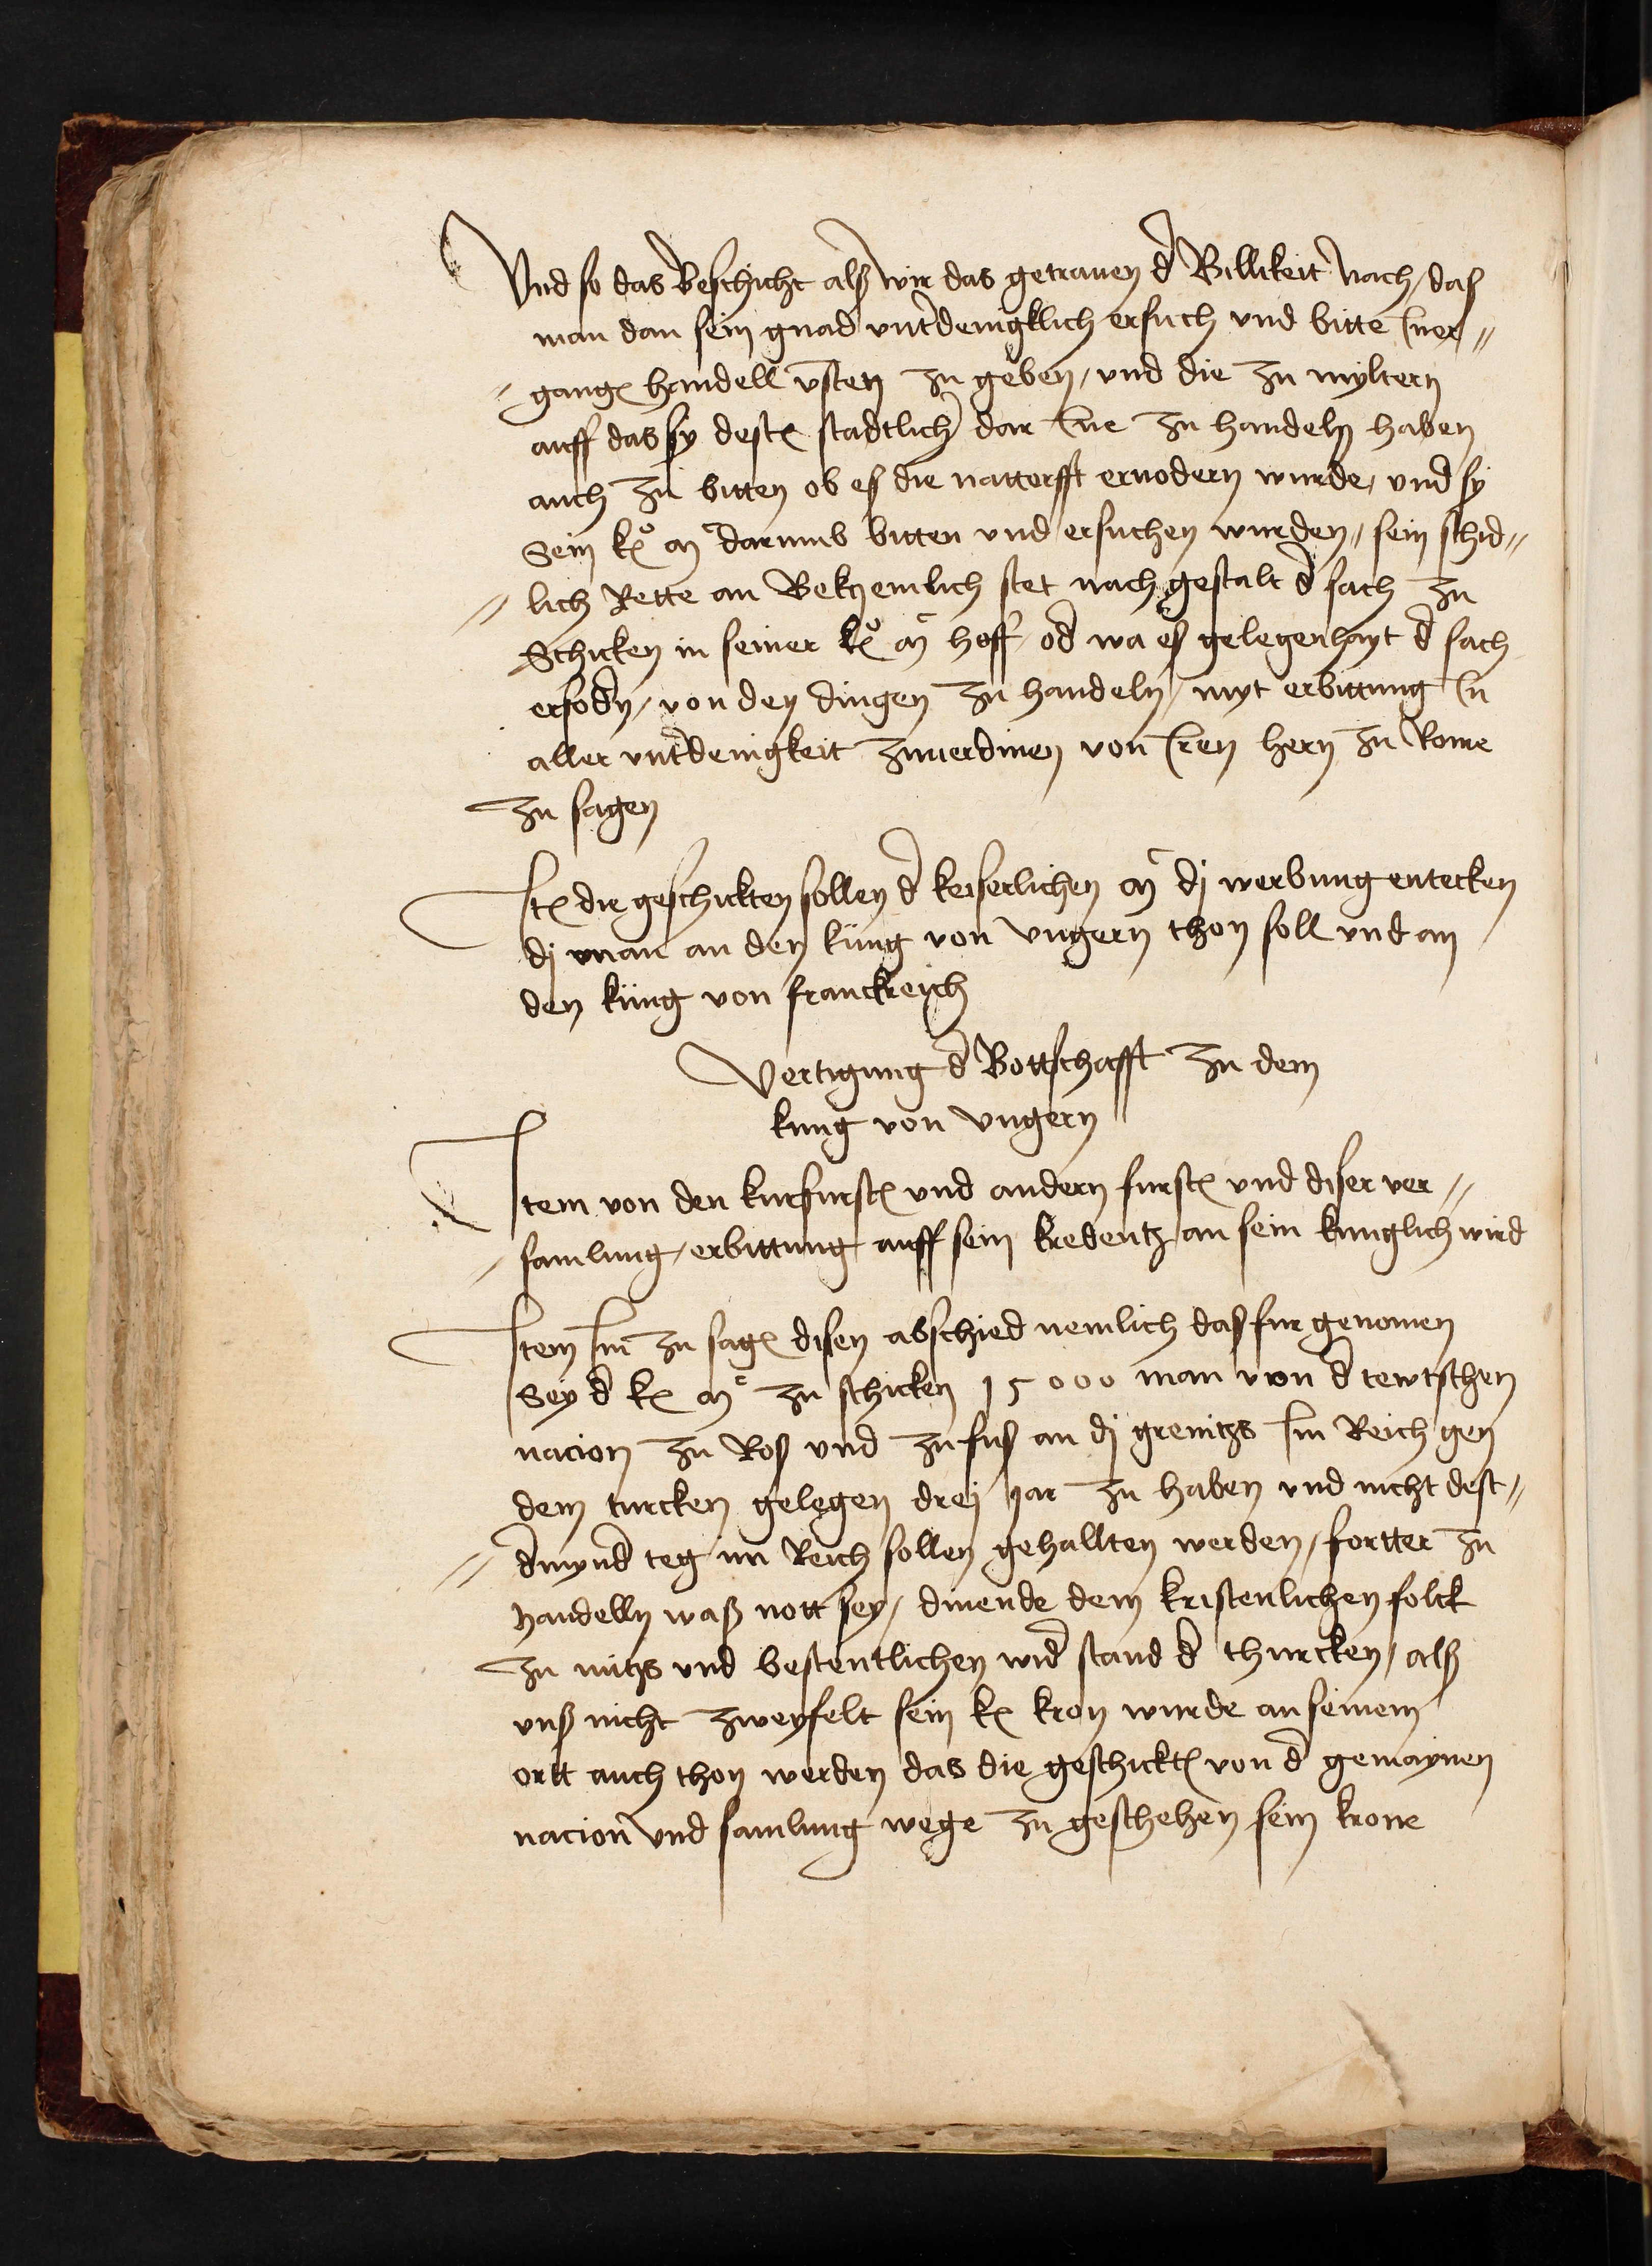 Vnd so das beschicht alß wir das getrauen d Billikeit nach / daß
man dan sein gnad vntdenigklich ersuch vnd bitte Iuer=
gang handell vsten zu geben / vnd die zu myltern
auff das sy dest stadtlich dar Ine zu handeln haben
auch zu bitten ob eß die nattorfft eruodern wurde / vnd sy
Sein k m darumb bitten vnd ersuchen wurden / sein schid=
lich Rette an Bekzemlich stet nach gestalt d sach zu
Schicken in seiner k m hoff / od wa eß gelegenhayt d sach
erfodn / von den dingen zu handeln / myt erbittung In
aller vntdenigkeit zuuerdinen von Iren hern zu Rome
zu sagen
It die geschickten sollen d keiserlichen m dj werbung entecken
dj man an den küng von vngern thon soll vnd an
den küng von franckreich
Vertigung d Bottschafft zu dem
kung von vngern
Item von den kurfurst vnd andern furst vnd diser ver=
samlung / erbittung auff sein kredentz an sein kunglich wird
Item Im zu sag disen abschied nemlich daß fur genomen
Sey d k m zu schicken 15000 man von d tewtschen
nacion zu Roß vnd zu fuß an dj grenitzs Im Reich gen
dem turcken gelegen drej Jar zu haben vnd nicht dest=
dmynd teg im Reich sollen gehallten werden / fortter zu
handelln waß nott sey / dinende dem kristenlichen folck
zu nutzs vnd bestentlichen wid stand d thurcken / alß
vnß nicht zweyfelt sein k kron wurde an seinem
ortt auch thon werden das die geschickt von d gemaynen
nacion vnd samlung wege zu geschehen sein krone